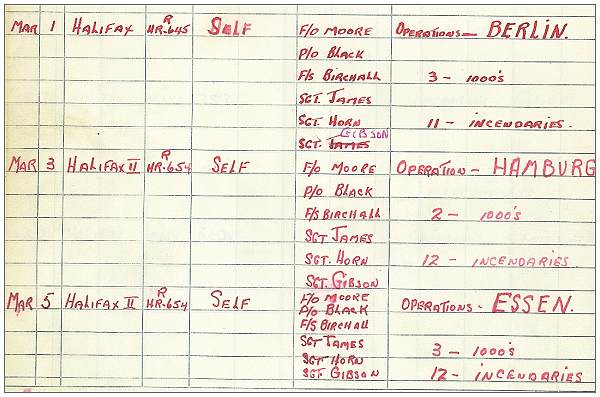 MAR 1 HALIFAX R HR.645 SELF F/O MOORE OPERATIONS— BERLIN.
P/O BLACK
F/S BIRCHALL 3 - 1000's
SGT. JAMES
SGT. HORN 11 - INCENDARIES.
GIBSON
SGT. JAMES
MAR 3 HALIFAX II R HR.654 SELF F/O MOORE OPERATION - HAMBURG
P/O BLACK
F/S BIRCHALL 2 - 1000's
SGT JAMES
SGT. HORN 12 - INCENDARIES.
SGT. GIBSON
MAR 5 HALIFAX II R HR.654 SELF F/O MOORE OPERATIONS - ESSEN.
P/O BLACK
F/S BIRCHALL
SGT JAMES 3 - 1000's
SGT HORN
SGT. GIBSON 12 - INCENDARIES